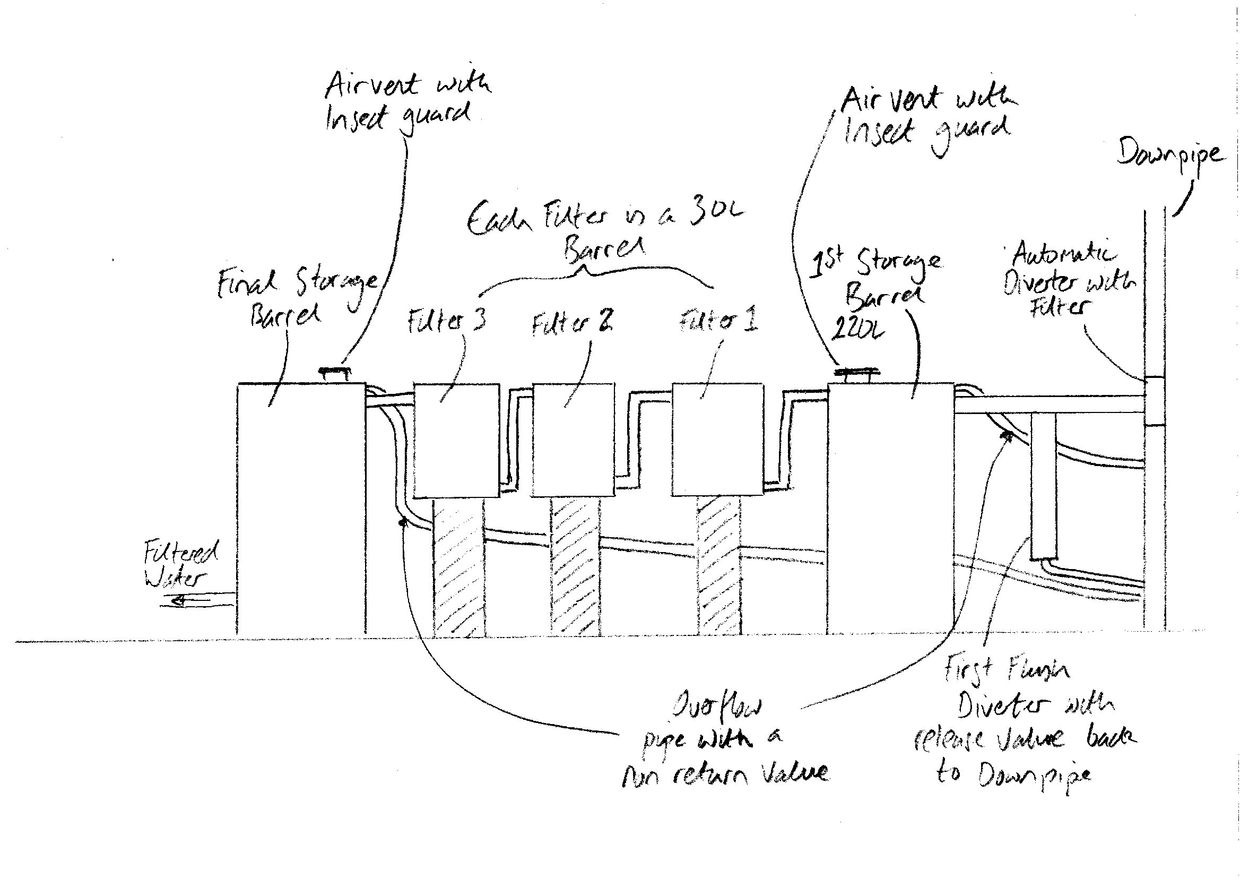 Airvent with
Insect guard
Air vent with
Insect guard
Downpipe
Each Filter is a 30L
Barrel
Final Storage
Barrel
Filter 3
Filter 2
Filter 1
1st Storage
Barrel
220L
Automatic
Diverter with
Filter
Filtered
Water
Overflow
pipe with a
non return Valve
First Flush
Diverter with
release Valve back
to Downpipe